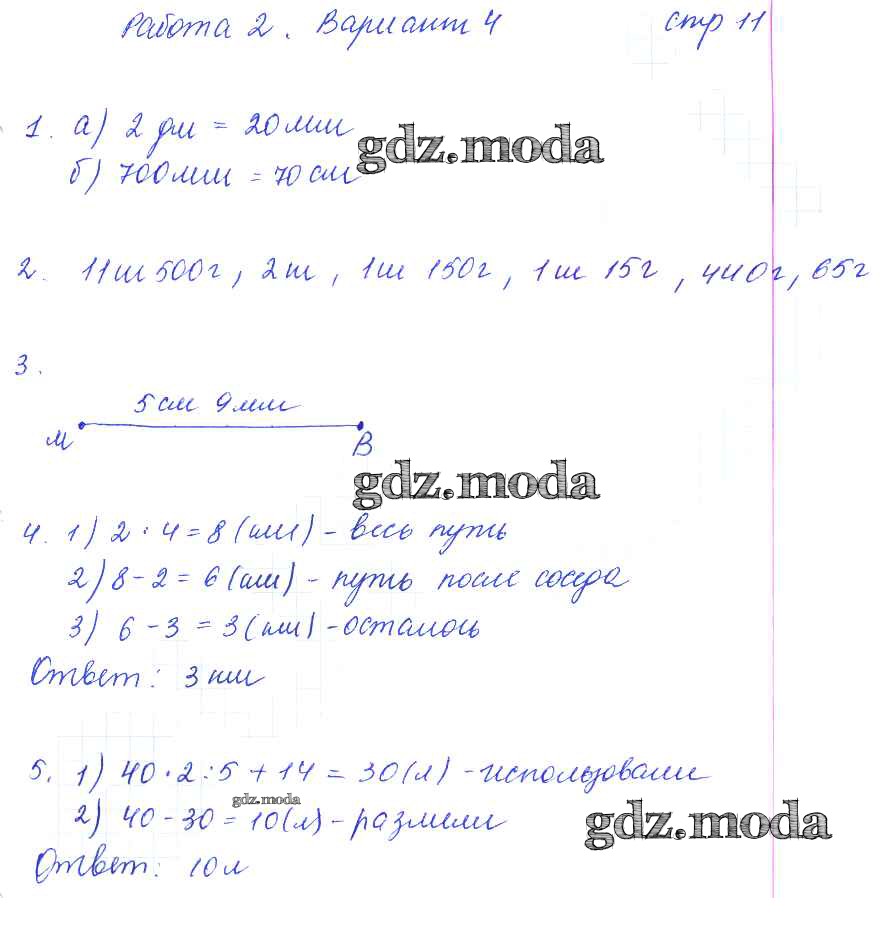 Работа 2. Вариант 4 стр 11
1. а) 2 дм = 20 мм
gdz.moda
б) 700 мм = 70 см
2. 11 ш 500 г, 2 ш, 1 ш 150 г, 1 ш 15 г, 440 г, 65 г
3.
5 см 9 мм
М В
gdz.moda
4. 1) 2 · 4 = 8 (км) - весь путь
2) 8 - 2 = 6 (км) - путь после соседа
3) 6 - 3 = 3 (км) - осталось
Ответ: 3 км
5. 1) 40 · 2 : 5 + 14 = 30 (л) - использовали
gdz.moda
2) 40 - 30 = 10 (л) - размели
gdz.moda
Ответ: 10 л